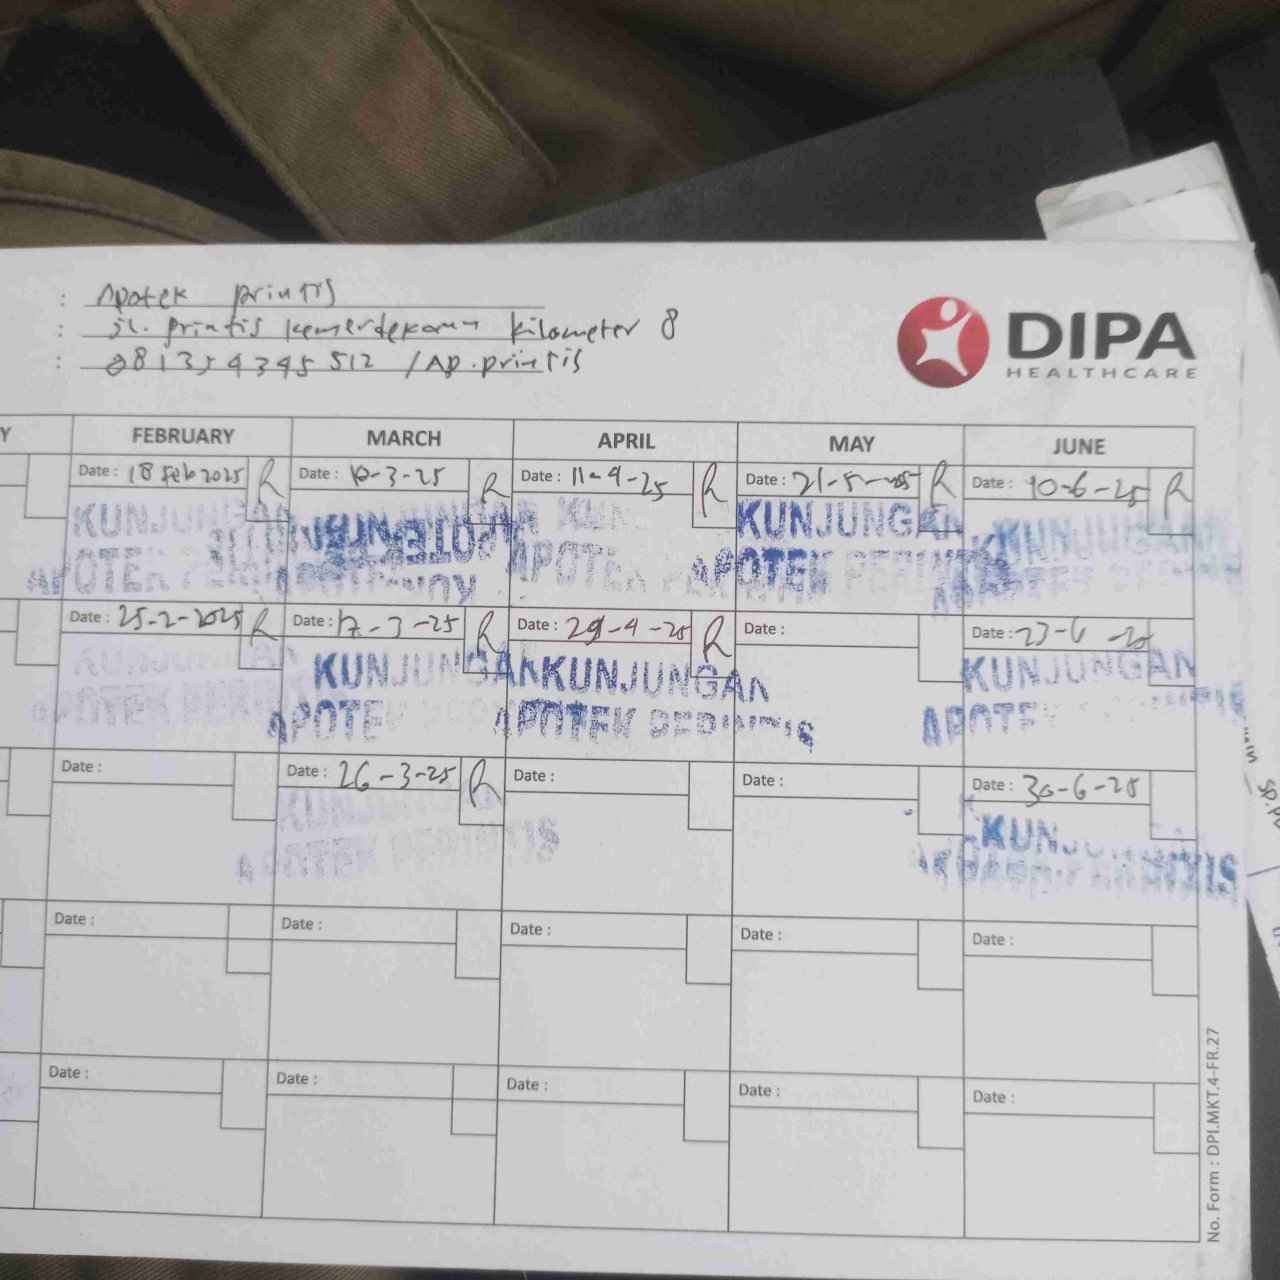 : Apotek printis
: jl. printis kemerdekaan kilometer 8
: 081354345512 /Ap.printis
DIPA
HEALTHCARE
Y FEBRUARY MARCH APRIL MAY JUNE
Date : 18 Feb 2025 R Date : 10-3-25 R Date : 11-4-25 R Date : 21-5-25 R Date : 10-6-25 R
KUNJUNGAN KUNJUNGAN KUNJUNGAN KUNJUNGAN
APOTEK PERINTIS APOTEK APOTEK PERINTIS APOTEK PERINTIS APOTEK
Date : 25-2-2025 R Date : 17-3-25 R Date : 29-4-25 R Date : Date : 23-6-25
KUNJUNGAN KUNJUNGAN KUNJUNGAN KUNJUNGAN
APOTEK PERINTIS APOTEK APOTEK PERINTIS APOTEK
Date : Date : 26-3-25 R Date : Date : Date : 30-6-25
KUNJUNGAN KUNJUNGAN
APOTEK PERINTIS
Date : Date : Date : Date : Date :
Date : Date : Date : Date : Date :
No. Form : DPI.MKT.4-FR.27